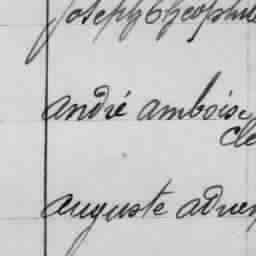 Joseph Théophile
andré amboise
cle
auguste adven